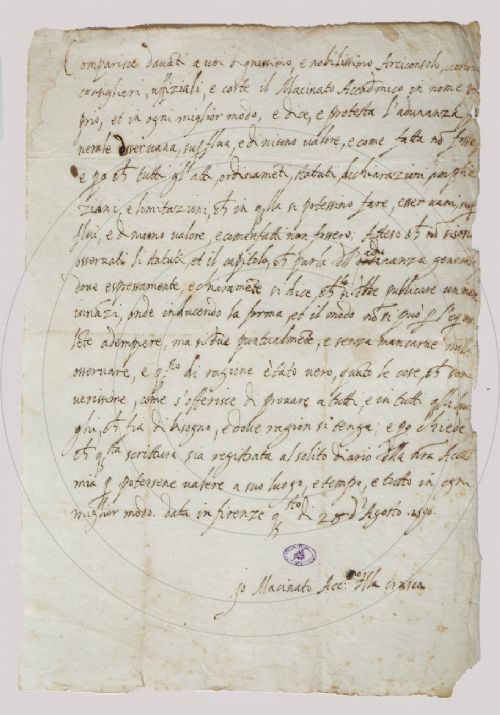 Comparisce davāti a voi dignissimo, e nobilissimo Arciconsolo,
consiglieri, uffiziali, e corte il Macinato Accādemico in nome pro
prio, et in ogni miglior modo, e dice, e protesta l'adunanza
nerale esser vana, supflua, e di niuno valore, e come fatta nō fosse
e pō ch̄ tutti gl'atti, ordinamēti, statuti, dichiarazioni, amplia
zioni, e limitazioni, ch̄ in q̄lla si potessino fare, esser vani, sup
flui, e di niuno valore, e come fatti non fossero; Atteso ch̄ nō si sono
osservati li statuti, et il capitolo, ch̄ parla dll' adunanza generale
dove espressamente, e chiaramēte si dice, ch̄ si dbbe publicare un mese
innāzi, onde inducendo la forma et il modo nō si può p
lēte adempiere, ma si dve puntualmēte, e senza mancarne nulla
osservare, e q̄sto di ragione è tāto vero, quāto le cose, ch̄ son
verissime, come s'offerisce di provare a tutti, e in tutti q̄lli luo
ghi, ch̄ fia di bisogno, e dove ragion si tenga; e pō chiede
ch̄ q̄sta scrittura sia registrata al solito diario dlla nrā Accade
mia p potersene valere a suo luogo, e tempo, e tutto in ogni
miglior modo. data in firenze q̄sto di 28 d'Agosto 1590.
Io Macinato Acc:mo dlla Crusca